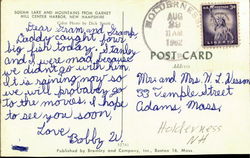 SQUAM LAKE AND MOUNTAINS FROM GARNET
HILL CENTER HARBOR, NEW HAMPSHIRE
Color Photo by Dick Smith
Dear Gram and Gramp,
Candy caught four
big fish today. Stanley
and I were mad because
we didn't go with him.
It is raining now so
we will probably go
to the movies. I hope
to see you soon,
Love,
Bobby W.
HOLDERNESS
AUG
11 AM
1962
POST CARD
Mr and Mrs W. L.
33 Temple Street
Adams, Mass.
Holderness
NH
Published by Bromley and Company, Inc., Boston 16, Mass.